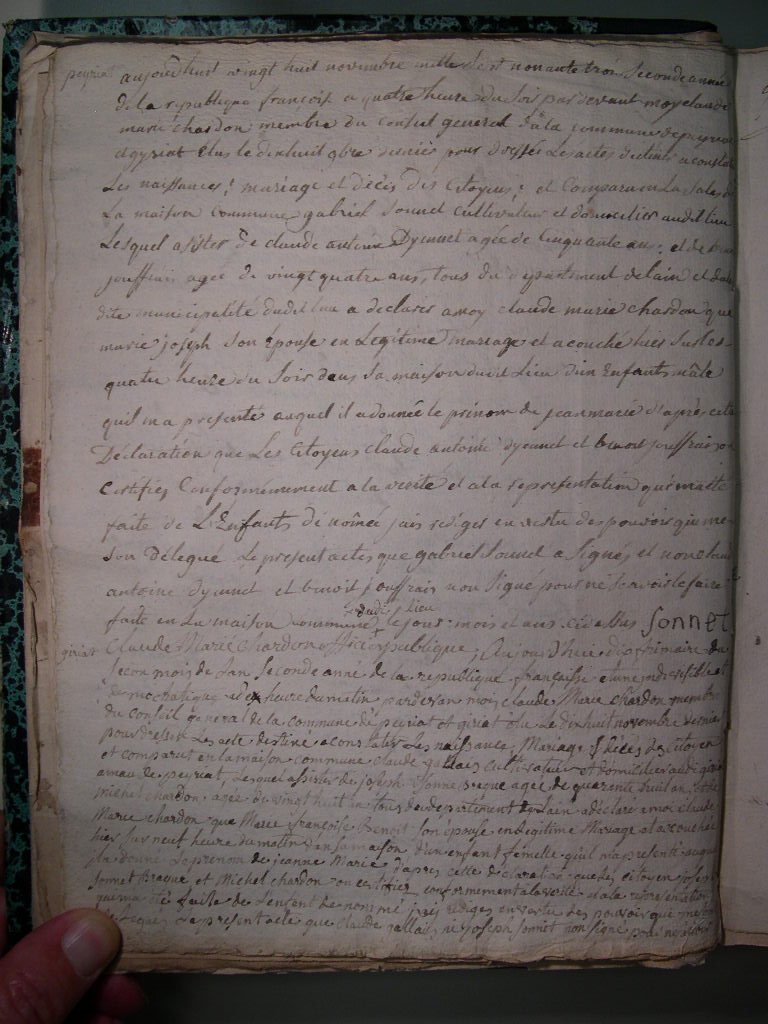 peyriat aujourdhuit vingt huit novembre mille sept nonante trois seconde année
de la republique francoise a quatre heure du soir par devant moy claude
marie chardon membre du conseil general de la commune de peyriat
agyriat elus le dixhuit 9bre dernier pour dresser les actes destinés a constater
les naissances, mariage et décès des Citoyens, et Comparu en la sale de
la maison commune gabriel sonnet cultivateur et domicilier audit lieu
lesquel assister de claude antoine Dyennet agée de Cinquante ans, et de benoit
jouffrais agee de vingt quatre ans, tous du departement de lain et de la
dite municipalité dudit lieu a declarer a moy claude marie chardon que
marie joseph son épouse en Legitime mariage et acouché hier sur les
quatre heure du soir dans sa maison dudit Lieu dun Enfants mâle
quil ma presenté auquel il a donnée le prénom de jean marie d'après cette
Déclaration que les Citoyens claude antoine dyennet et benoit jouffrais on
Certifiez Conformémement a la verité et a la representation qui ma été
faite de L'Enfants dénomée jais rediges en vertu des pouvoirs qui me
son délégué le present actes que gabriel sonnet a Signés et non claude
antoine dyennet et benoit jouffrais non Signe pour ne scavoir le faire
faite en la maison commune dudit Lieu le jour mois et ans cie dessus Sonnet
Claude Marie Chardon officier publique
giriat Aujourdhui dixprimaire du
secon mois de lan seconde anné de la republique française et une indivisible et
democratique a heure du matin pardevan mois claude Marie chardon membre
du conseil general de la commune de peyriat et giriat elu le dixhuit novembre dernier
pour dresser les acte destiné a constater les naissance, Mariage & décès de citoyen
et comparut en la maison commune claude gallais cultivateur et domicilier audi giriat
ameau de peyriat, lesquel assister de joseph sonnet brague agee de quarente huit an, et de
michel chardon agee de vingt huit an tous du departement de lain a déclaré a moi claude
Marie chardon que Marie françoise Benoit son épouse en legitime Mariage et acouchée
hier sur neuf heure du matin dans sa maison d'un enfant femelle qu'il m'a presenté auquel
il a donné le prenom de jeanne Marie d'apres cette déclaration que les citoyen joseph
sonnet Brague et Michel chardon on certifiez conformement a la verité et a la representation
qui ma été faite de l'enfent denommé jais rediges en vertu des pouvoirs qui me son
délégués le present acte que claude gallais ni joseph sonnet non signe pour ne savoir